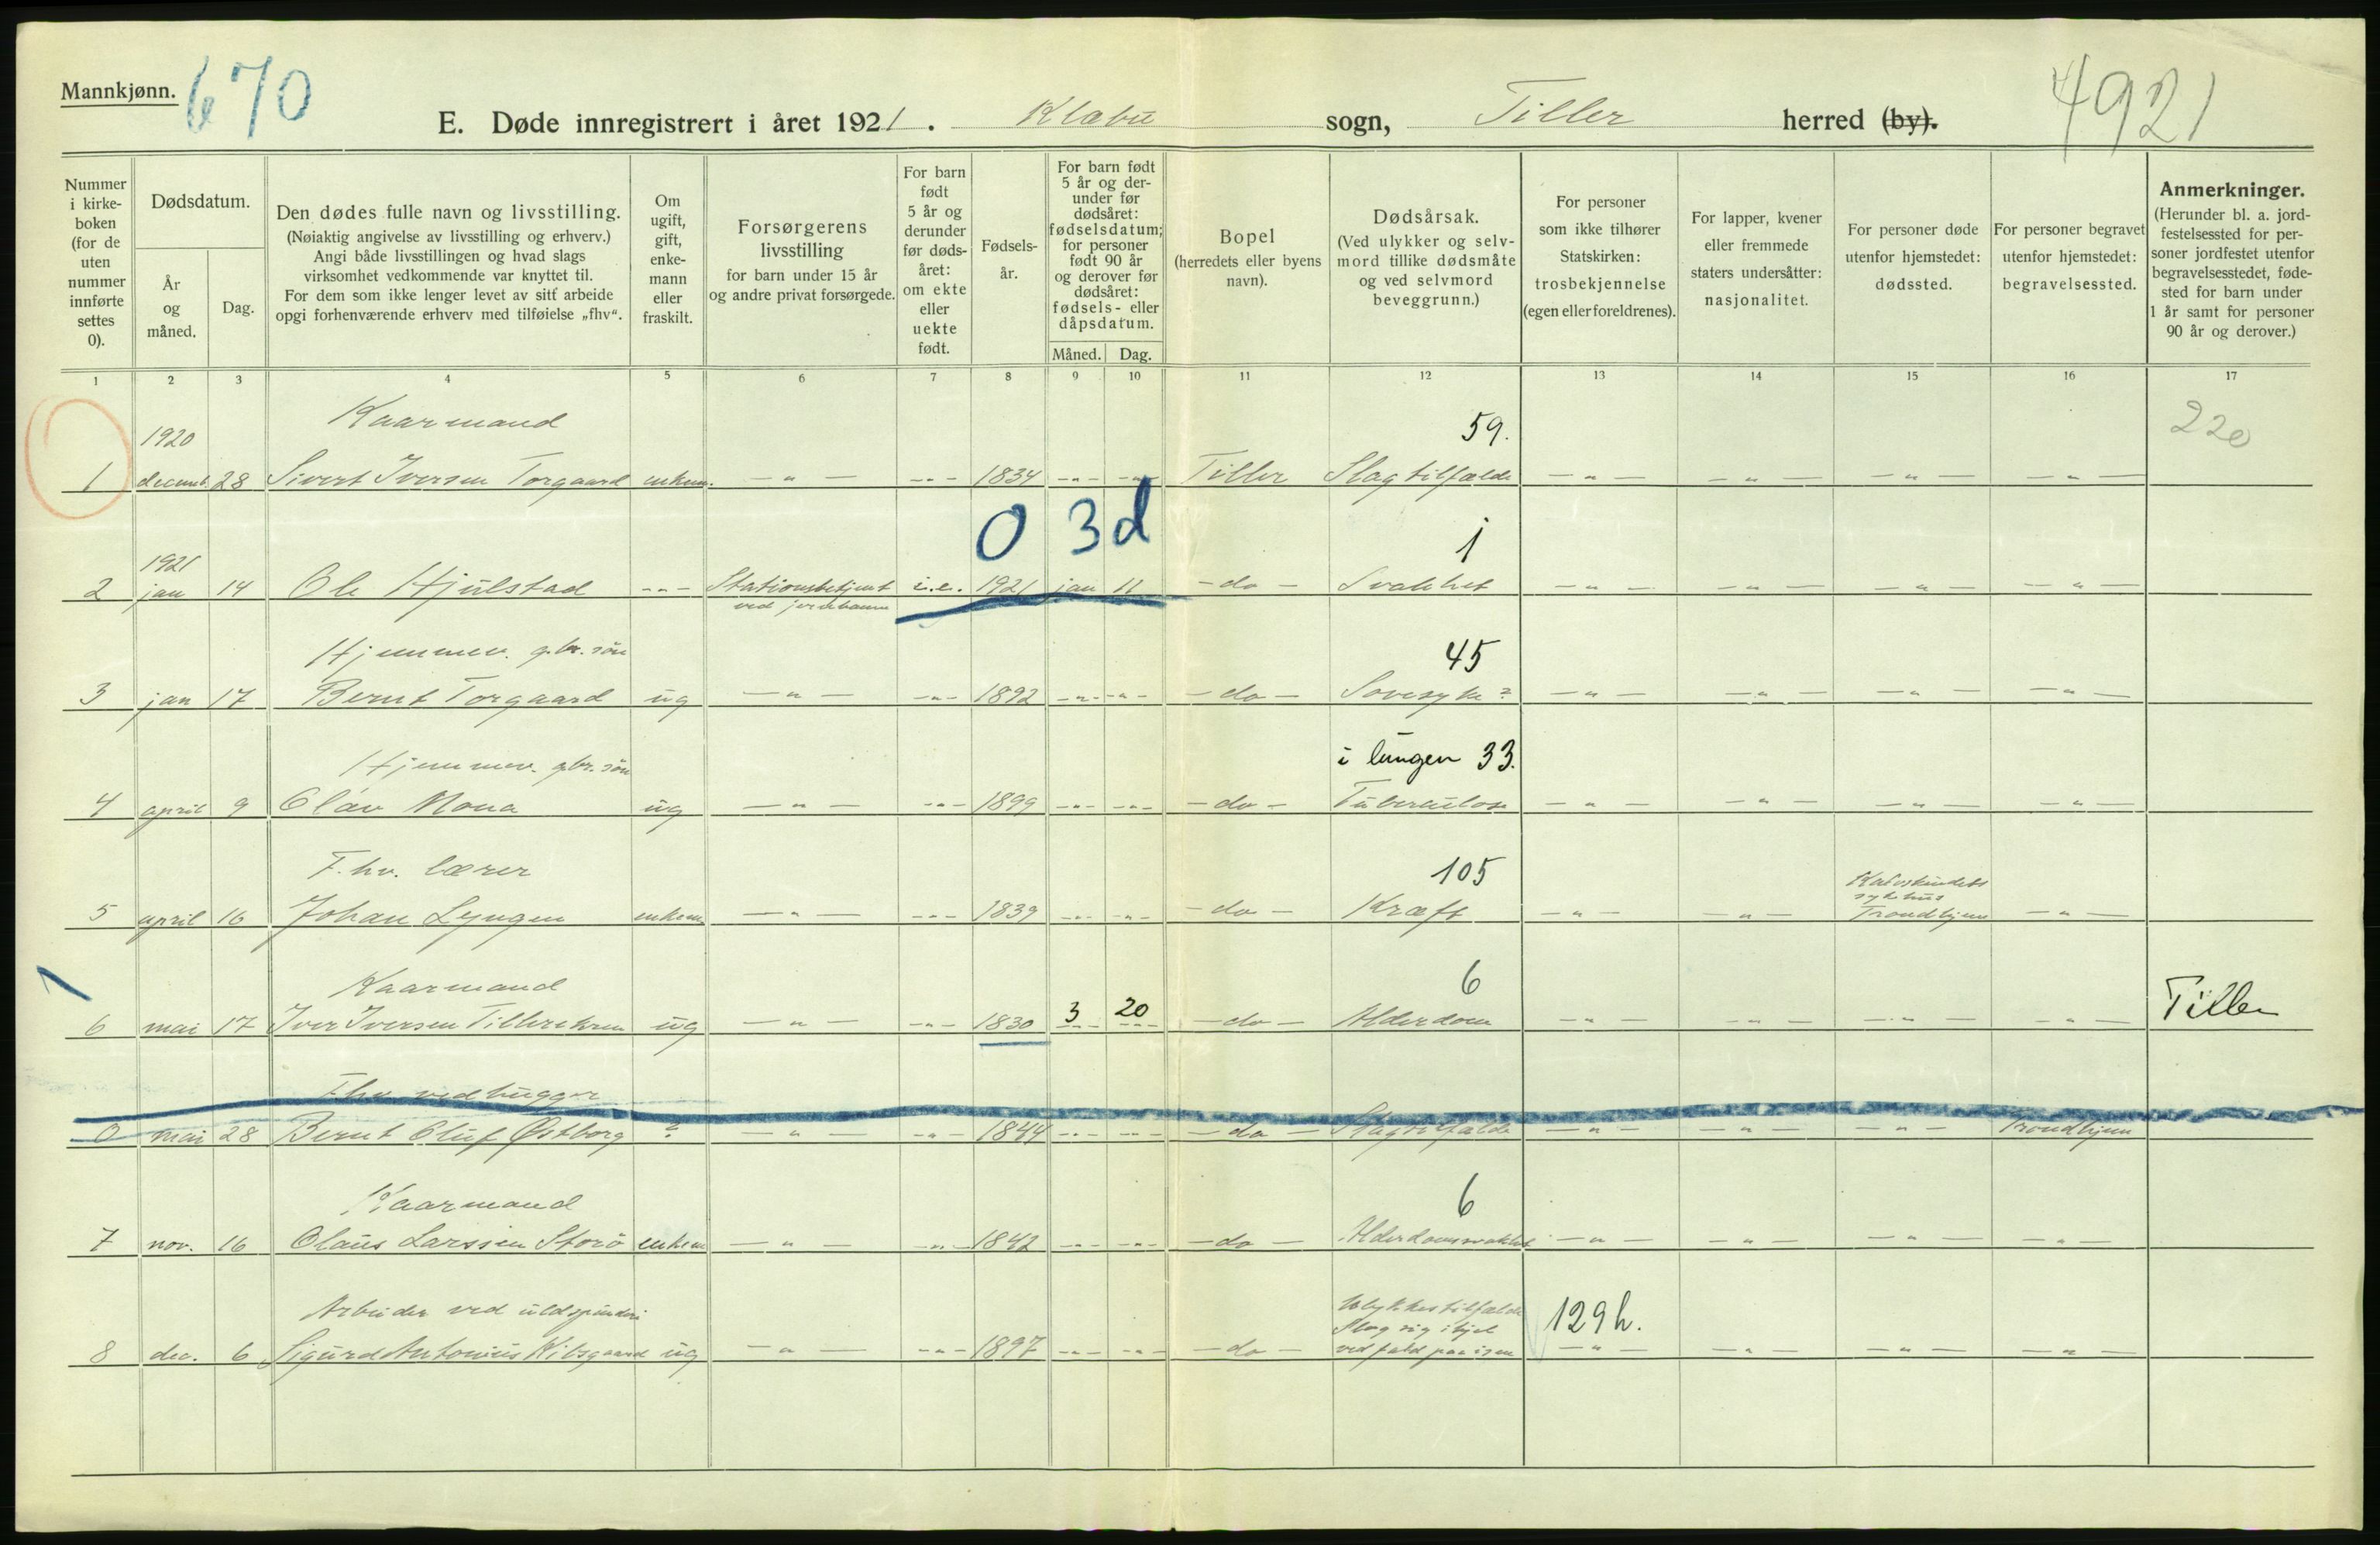 Mannkjønn. 670
E. Døde innregistrert i året 1921. Klæbu sogn, Tiller herred (by). 4921
Nummer i kirke-boken (for de uten nummer innførte settes 0).
Dødsdatum.
År og måned.
Dag.
Den dødes fulle navn og livsstilling.
(Nøiaktig angivelse av livsstilling og erhverv.)
Angi både livsstillingen og hvad slags
virksomhet vedkommende var knyttet til.
For dem som ikke lenger levet av sitt arbeide
opgi forhenværende erhverv med tilføielse „fhv“.
Om ugift, gift, enke-mann eller fraskilt.
Forsørgerens livsstilling
for barn under 15 år
og andre privat forsørgede.
For barn født 5 år og derunder før døds-året: om ekte eller uekte født.
Fødsels-år.
For barn født 5 år og der-under før dødsåret: fødselsdatum; for personer født 90 år og derover før dødsåret: fødsels- eller dåpsdatum.
Måned. Dag.
Bopel
(herredets eller byens navn).
Dødsårsak.
(Ved ulykker og selv-mord tillike dødsmåte og ved selvmord beveggrunn.)
For personer som ikke tilhører Statskirken: trosbekjennelse (egen eller foreldrenes).
For lapper, kvener eller fremmede staters undersåtter: nasjonalitet.
For personer døde utenfor hjemstedet: dødssted.
For personer begravet utenfor hjemstedet: begravelsessted.
Anmerkninger.
(Herunder bl. a. jord-festelsessted for per-soner jordfestet utenfor begravelsesstedet, føde-sted for barn under 1 år samt for personer 90 år og derover.)
1 2 3 4 5 6 7 8 9 10 11 12 13 14 15 16 17
Kaarmand
1920 59. 220
1 decemb. 28 Sivert Iversen Torgaard enkem. - " - - " - 1834 - " - - " - Tiller Slagtilfælde - " - - " - - " - - " -
0 3d 1
1921
2 jan 14 Ole Hjulstad - " - Stationsbetjent i.e. 1921 jan 11 - do - Svakhet - " - - " - - " - - " -
ved jernbanen
Hjemmev. gbr. søn 45
3 jan 17 Bernt Torgaard ug - " - - " - 1892 - " - - " - - do - Sovesyke? - " - - " - - " - - " -
Hjemmev. gbr. søn i lungen 33.
4 april 9 Olav Mona ug - " - - " - 1899 - " - - " - - do - Tuberculose - " - - " - - " - - " -
F. hv. lærer 105
5 april 16 Johan Lyngen enkem - " - - " - 1839 - " - - " - - do - Kræft - " - - " - sykehus Trondhjem - " -
Kaarmand 6
6 mai 17 Iver Iversen ug - " - - " - 1830 3 20 - do - Alderdom - " - - " - - " - - " - Tiller
Fhv vedhugger
0 mai 28 Bernt Oluf Østborg ? - " - - " - 1844 - " - - " - - do - Slagtilfælde - " - - " - - " - Trondhjem
Kaarmand 6
7 nov. 16 Olaus Larssen Storø enkem - " - - " - 1842 - " - - " - - do - Alderdomsvakhet - " - - " - - " - - " -
Arbeider ved uldspinderi Ulykkestilfælde 129 h.
Slog sig ihjel
8 dec. 6 Sigurd Antonius ug - " - - " - 1897 - " - - " - - do - ved fald paa isen - " - - " - - " - - " -